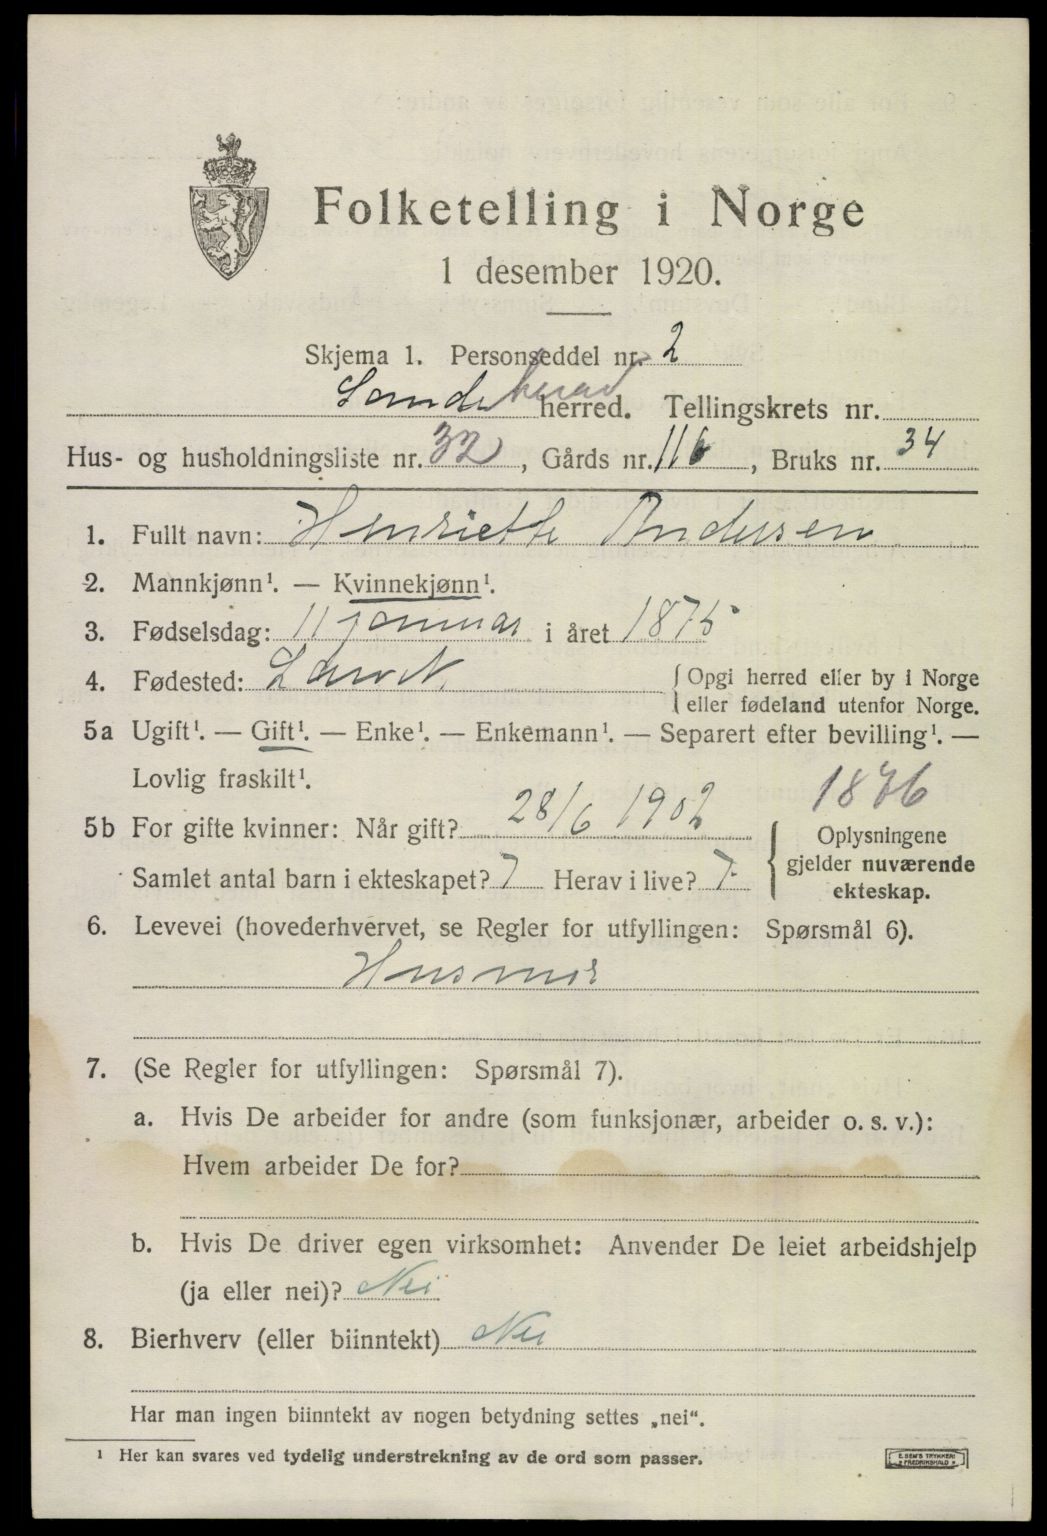 Folketelling i Norge
1 desember 1920.
Skjema 1. Personseddel nr. 2
Sandeherad herred. Tellingskrets nr.
Hus- og husholdningsliste nr. 32, Gårds nr. 116, Bruks nr. 34
1. Fullt navn: Henriette Andersen
2. Mannkjønn¹. — Kvinnekjønn¹.
3. Fødselsdag: 11 januar i året 1875
4. Fødested: Larvik {Opgi herred eller by i Norge
eller fødeland utenfor Norge.
5a Ugift¹. — Gift¹. — Enke¹. — Enkemann¹. — Separert efter bevilling¹. —
Lovlig fraskilt¹.
1876
5b For gifte kvinner: Når gift? 28/6 1902
Samlet antal barn i ekteskapet? 7 Herav i live? 7
{Oplysningene
gjelder nuværende
ekteskap.
6. Levevei (hovederhvervet, se Regler for utfyllingen: Spørsmål 6).
Husmor
7. (Se Regler for utfyllingen: Spørsmål 7).
a. Hvis De arbeider for andre (som funksjonær, arbeider o. s. v.):
Hvem arbeider De for?
b. Hvis De driver egen virksomhet: Anvender De leiet arbeidshjelp
(ja eller nei)? Nei
8. Bierhverv (eller biinntekt) Nei
Har man ingen biinntekt av nogen betydning settes „nei“.
¹ Her kan svares ved tydelig understrekning av de ord som passer.
E. SEM'S TRYKKERI
FREDRIKSHALD